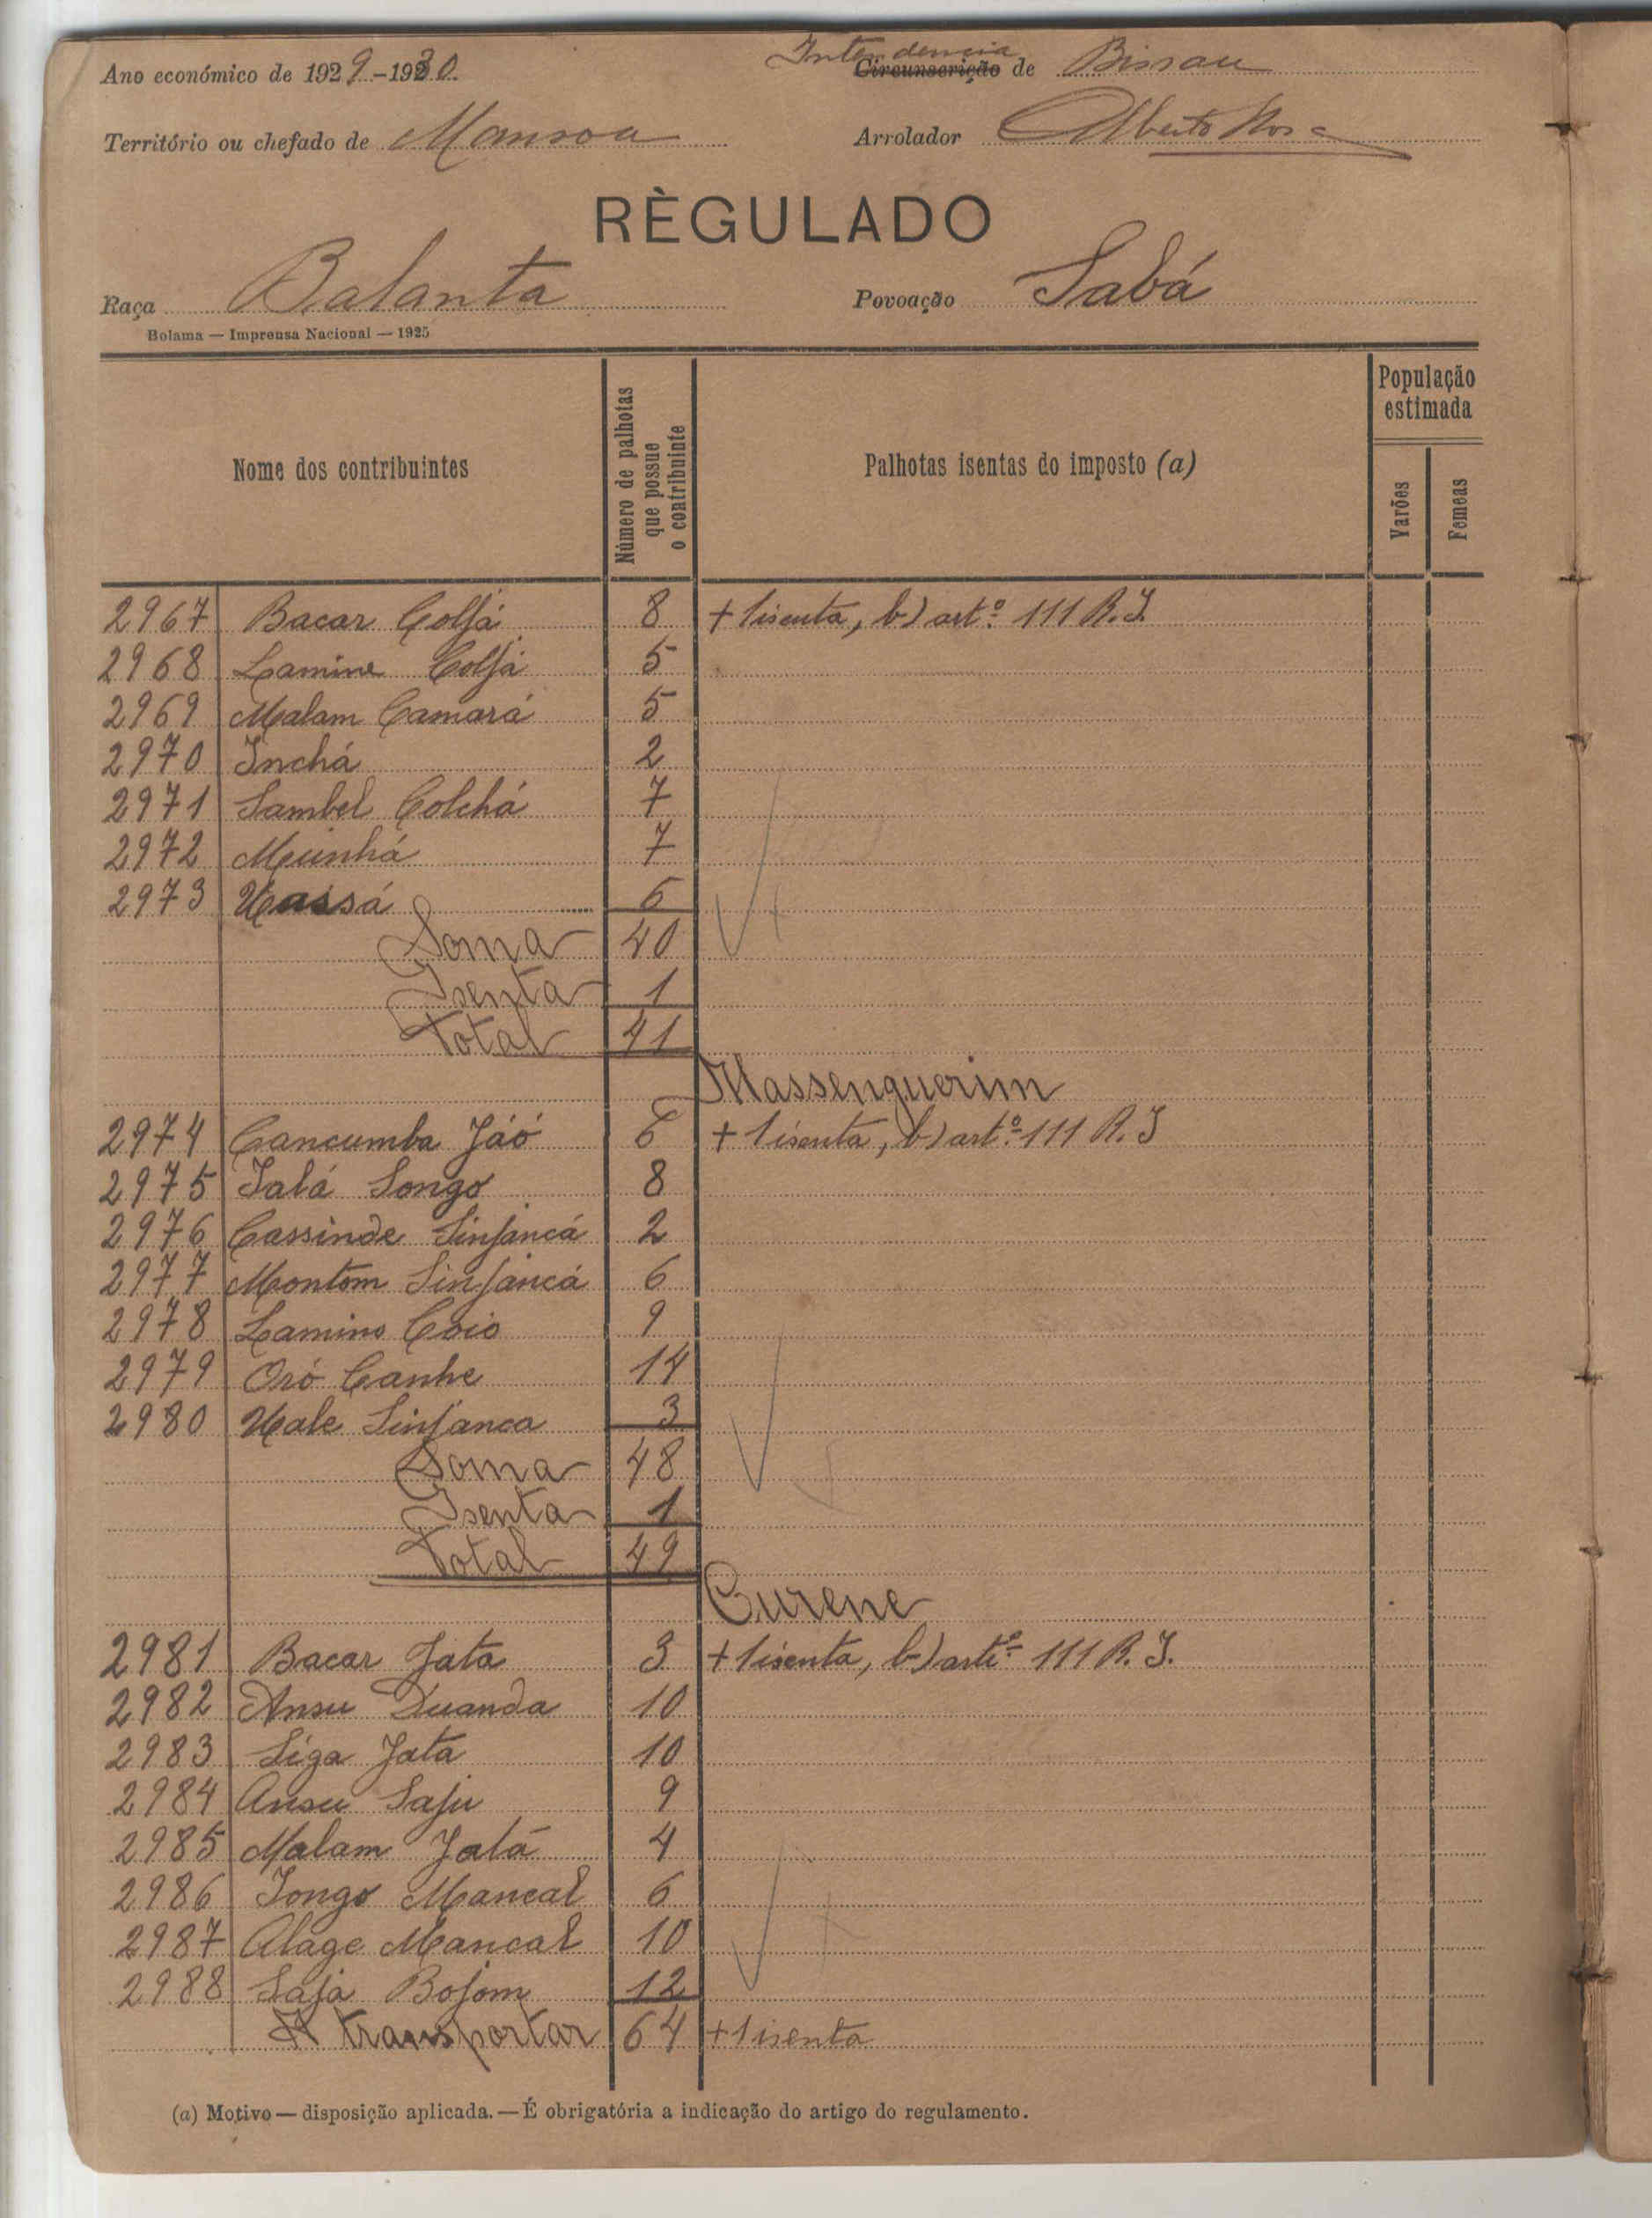 Ano económico de 1929-1930. Intendencia Circunscrição de Bissau
Território ou chefado de Mansoa Arrolador Alberto
RÈGULADO
Raça Balanta Povoação Sabá
Bolama — Imprensa Nacional — 1925
Nome dos contribuintes
Número de palhotas que possue o contribuinte
Palhotas isentas do imposto (a)
População estimada
Varões
Femeas
2967 Bacar Coljá 8 + 1 isenta, b) artº 111 R.I.
2968 Lamine Coljá 5
2969 Malam Camará 5
2970 Inchá 2
2971 Sambel Colchá 7
2972 Muinhá 7
2973 Uassá 6
Soma 40
Isenta 1
Total 41
Massenquerim
2974 Cancumba Jáó 6 + 1 isenta, b) artº 111 R.I
2975 Jalá Songo 8
2976 Cassinde Sinjancá 2
2977 Montom Sinjancá 6
2978 Lamino Coio 9
2979 Oró Canhe 14
2980 Uale Sinjanca 3
Soma 48
Isenta 1
Total 49
Curene
2981 Bacar Jata 3 + 1 isenta, b) artiº 111 R.I.
2982 Ansu Duanda 10
2983 Siga Jata 10
2984 Ansu Saju 9
2985 Malam Jatá 4
2986 Jongo Mancal 6
2987 Alage Mancal 10
2988 Saja Bojom 12
A transportar 64 + 1 isenta
(a) Motivo — disposição aplicada. — É obrigatória a indicação do artigo do regulamento.